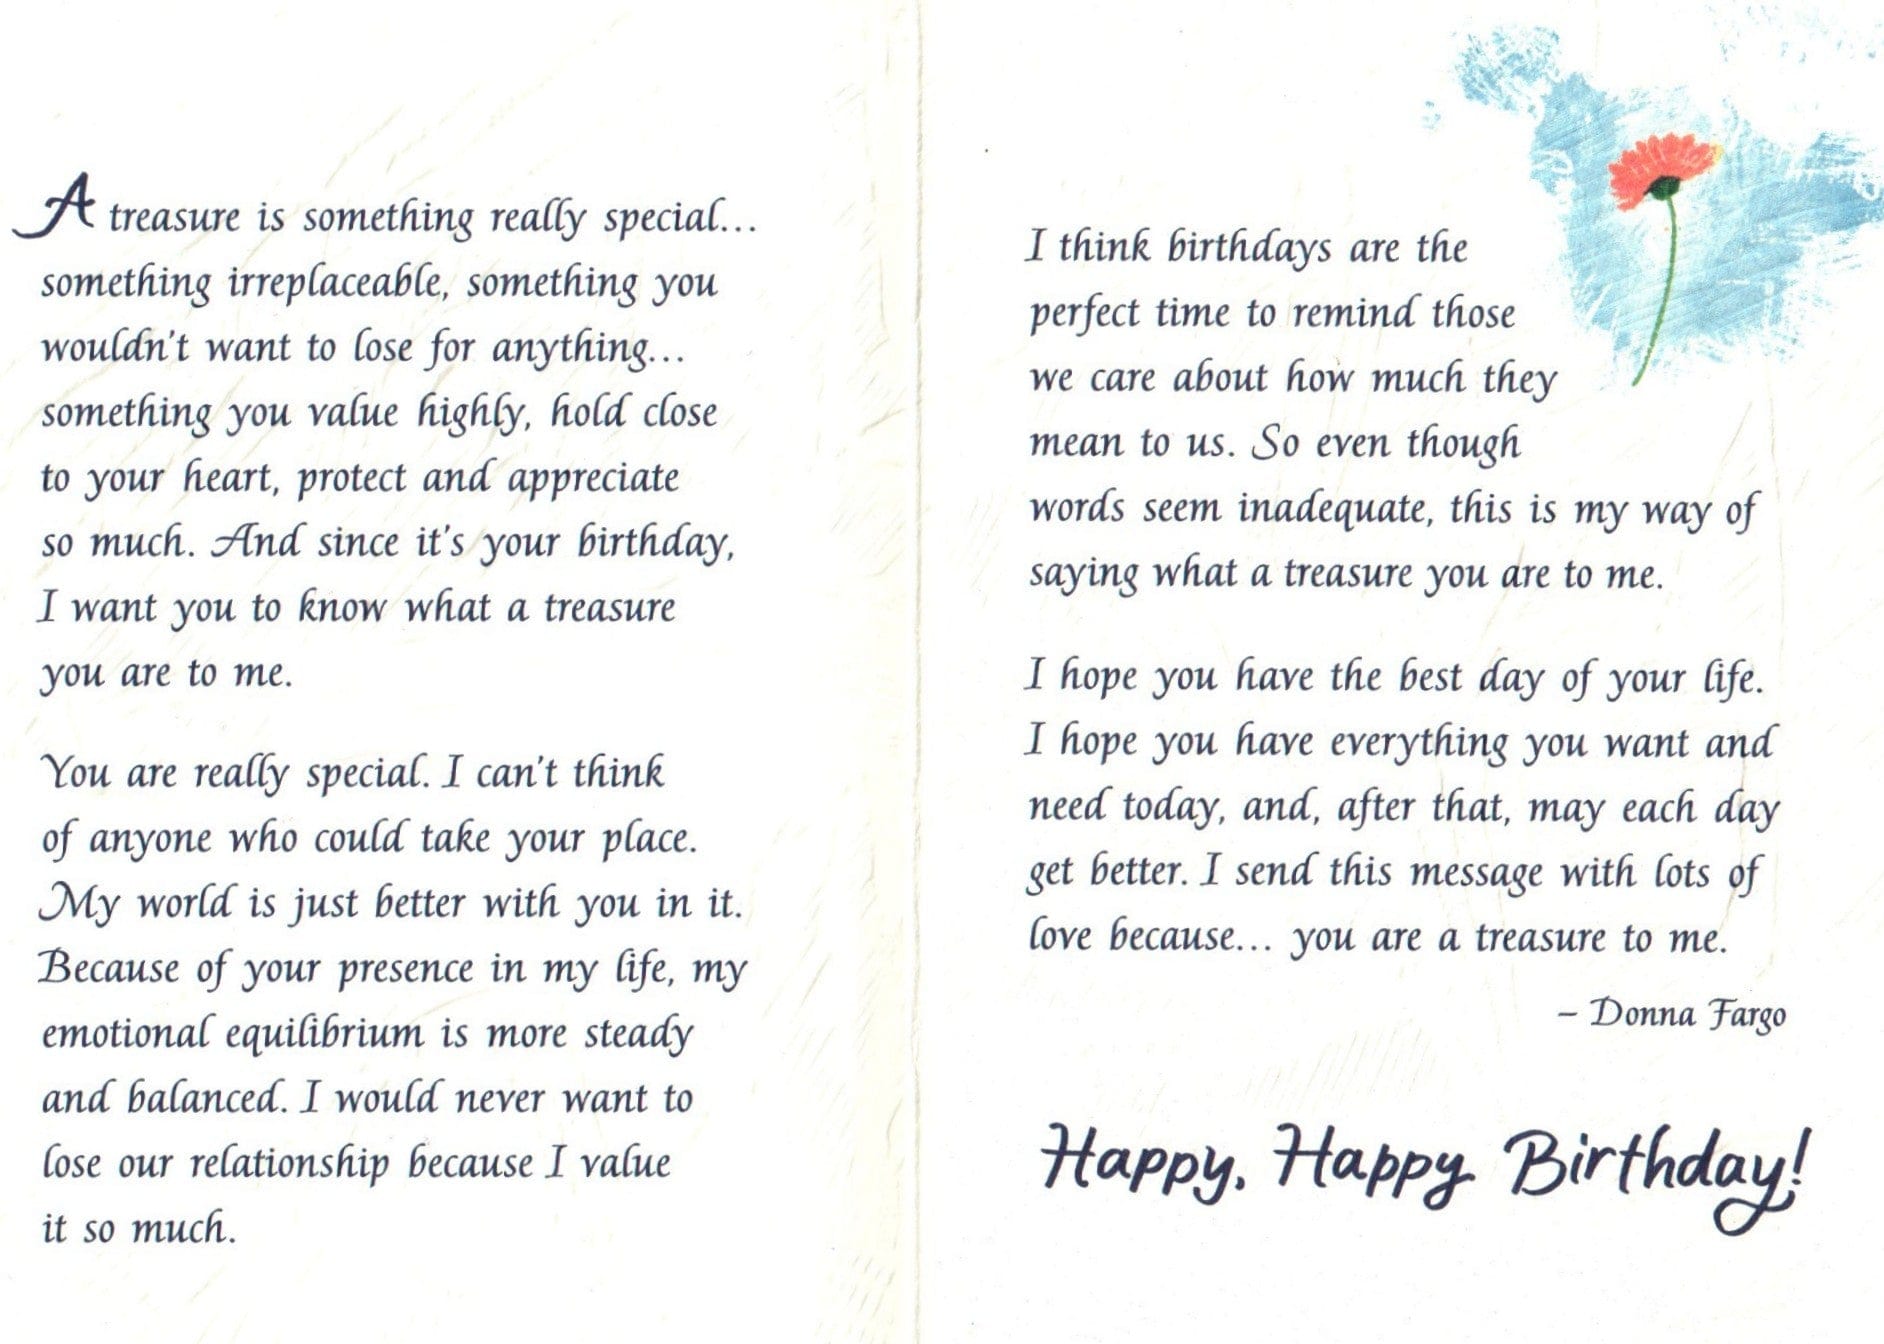 A treasure is something really special...
something irreplaceable, something you
wouldn't want to lose for anything...
something you value highly, hold close
to your heart, protect and appreciate
so much. And since it's your birthday,
I want you to know what a treasure
you are to me.
You are really special. I can't think
of anyone who could take your place.
My world is just better with you in it.
Because of your presence in my life, my
emotional equilibrium is more steady
and balanced. I would never want to
lose our relationship because I value
it so much.
I think birthdays are the
perfect time to remind those
we care about how much they
mean to us. So even though
words seem inadequate, this is my way of
saying what a treasure you are to me.
I hope you have the best day of your life.
I hope you have everything you want and
need today, and, after that, may each day
get better. I send this message with lots of
love because... you are a treasure to me.
– Donna Fargo
Happy, Happy Birthday!